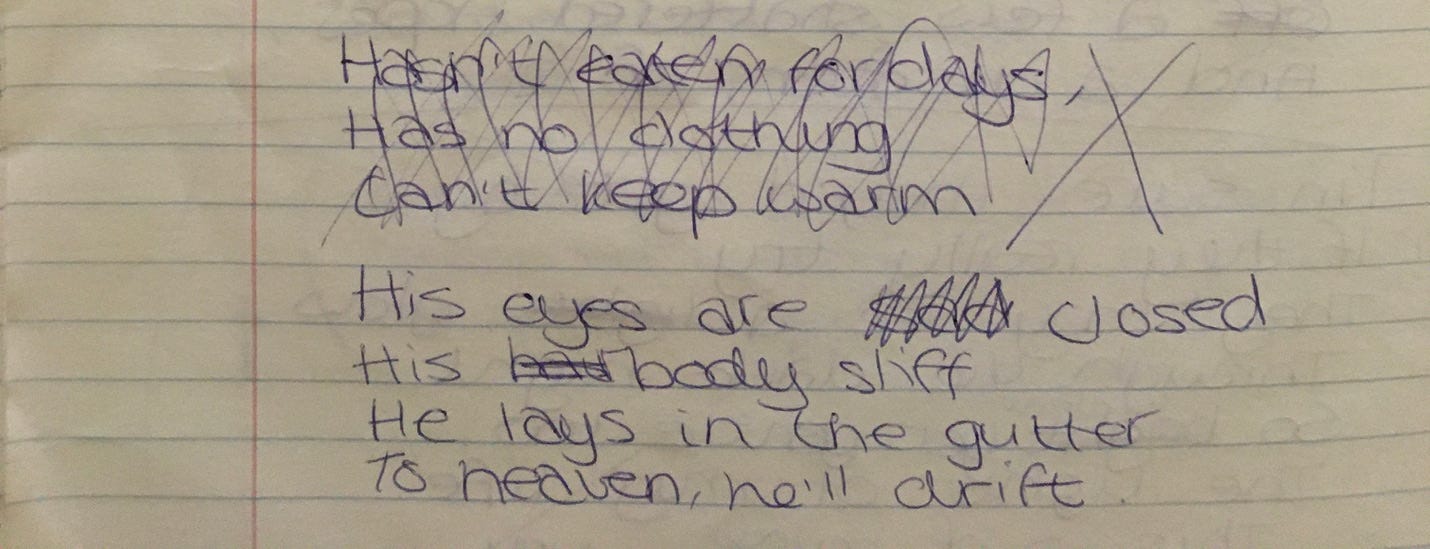 Hasn't eaten for days,
Has no clothing
Can't keep warm
His eyes are closed
His body stiff
He lays in the gutter
To heaven, he'll drift.